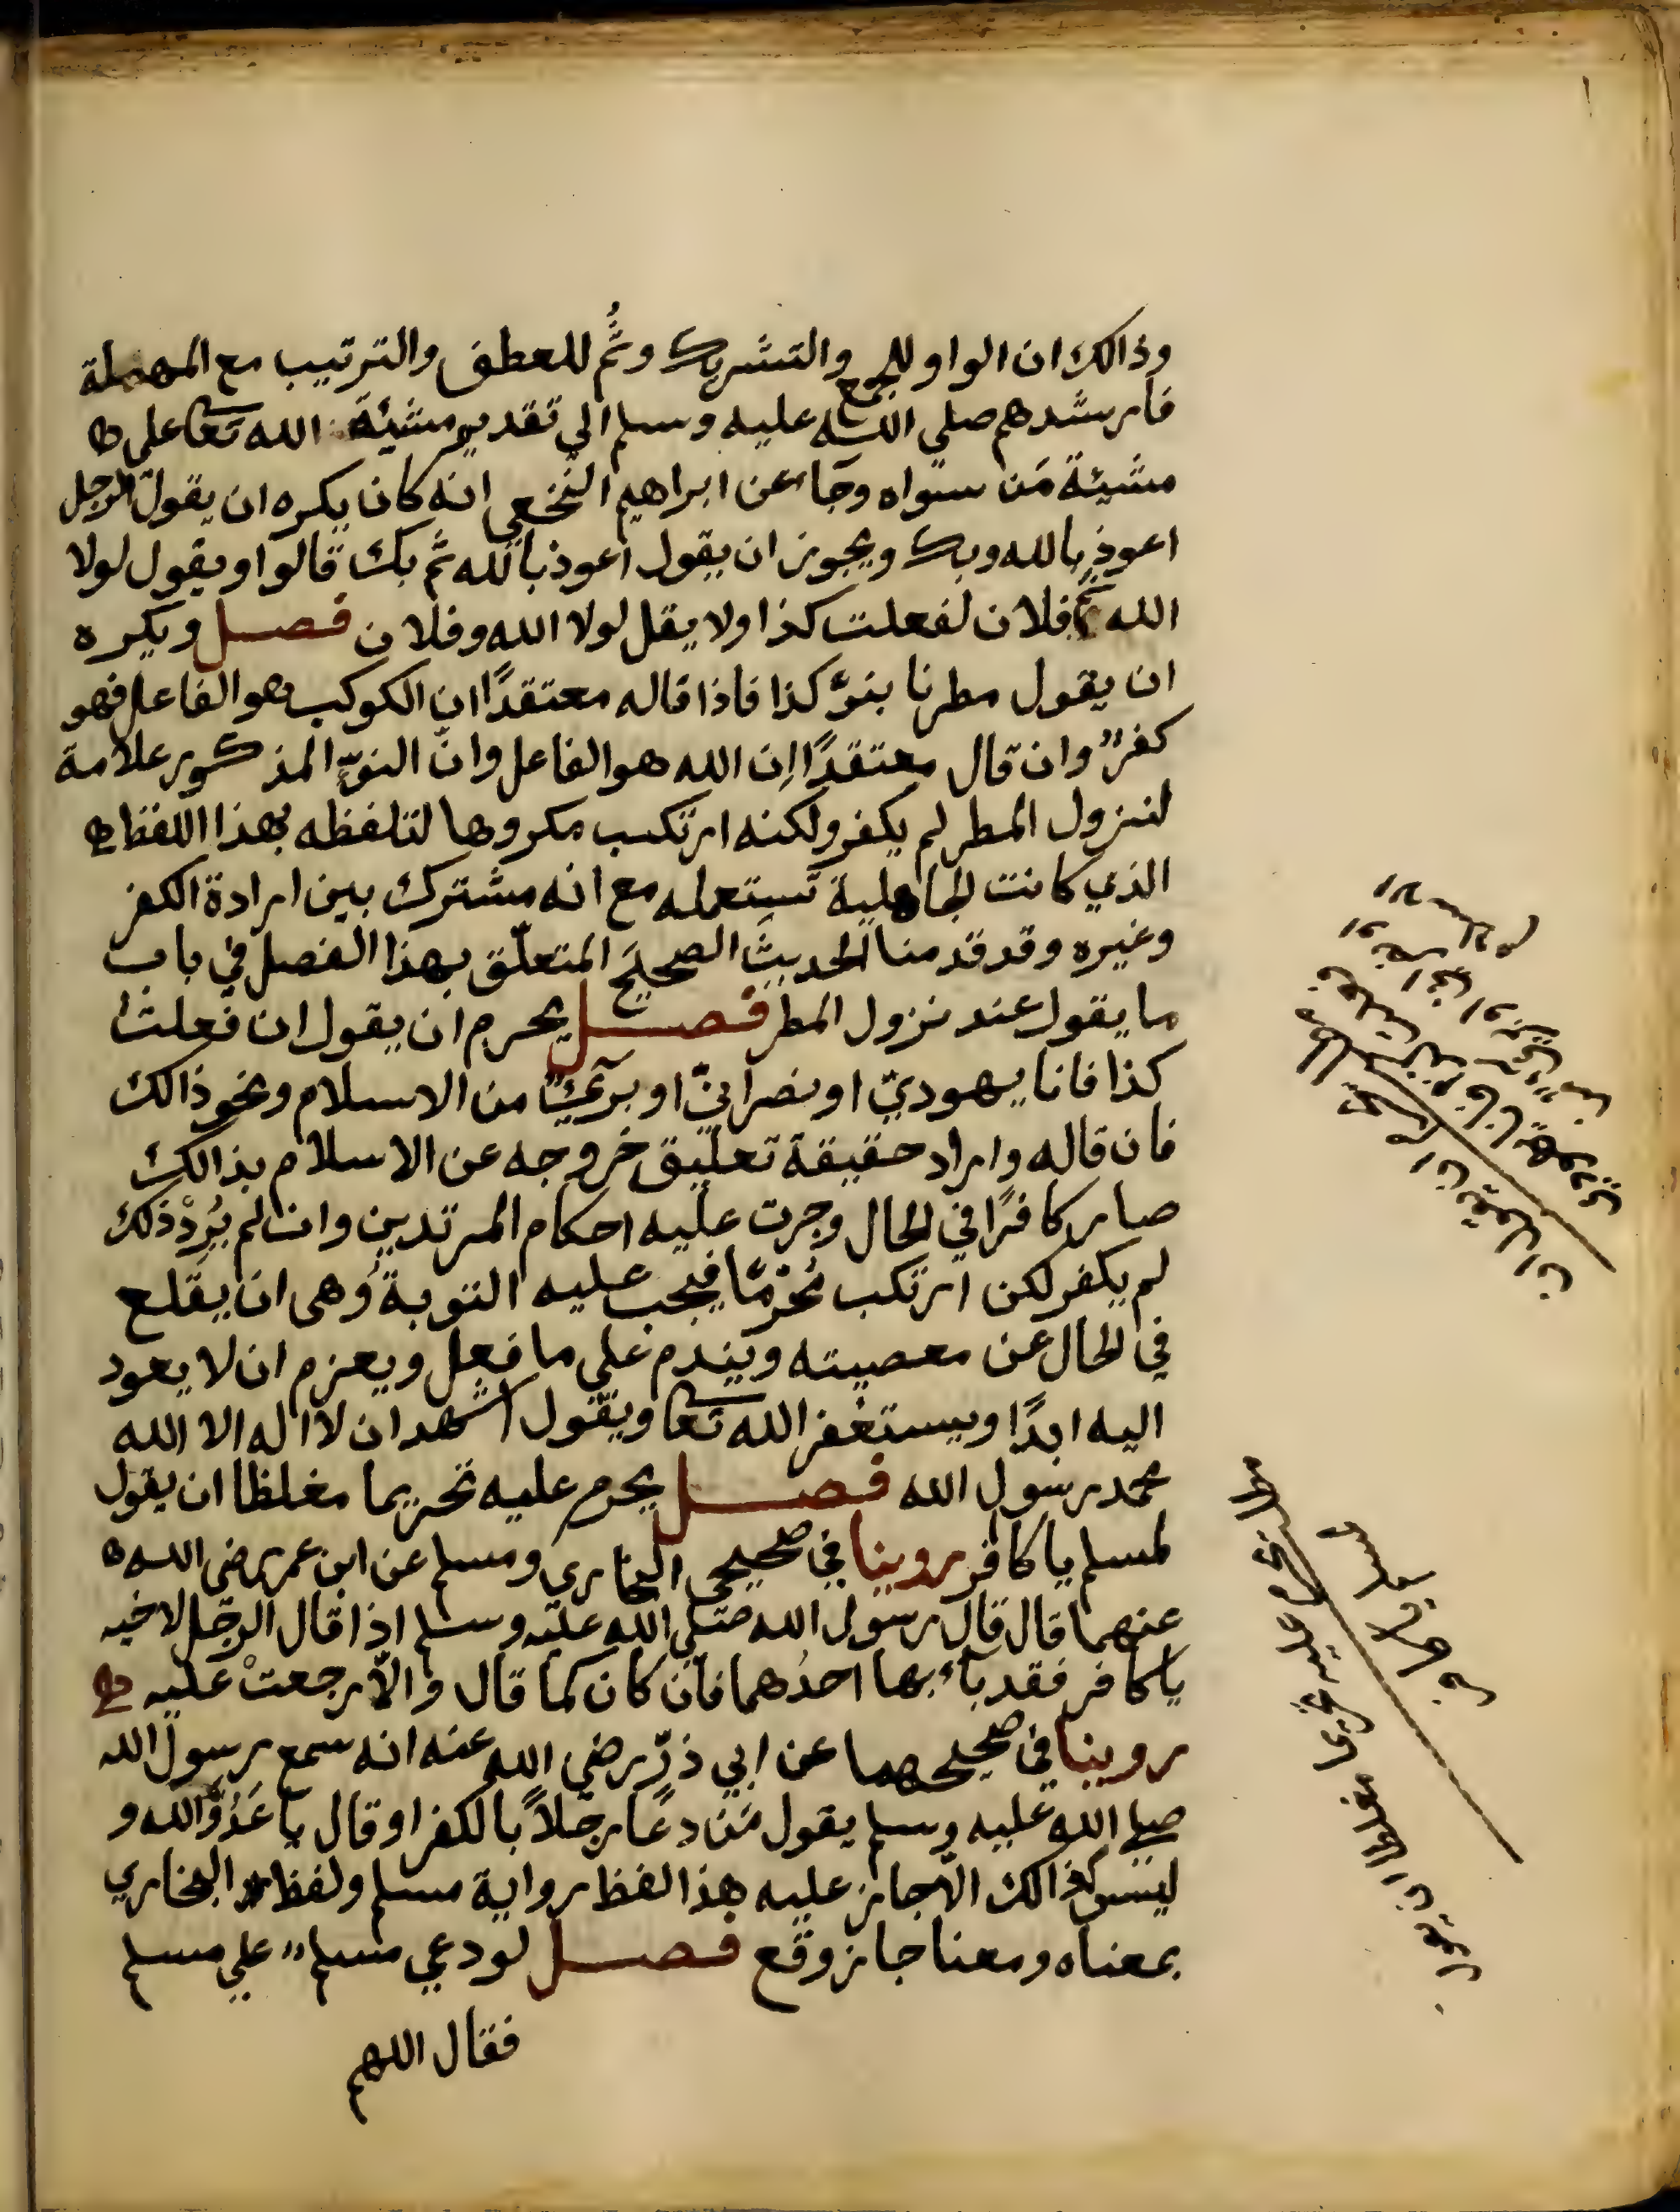 وذالك ان الواو للجمع والتشريك وثُمَّ للعطف والترتيب مع المهملة
فارشدهم صلي الله عليه وسلم الي تقديم مشيئة الله تعا على
مشيئة مَن سواه وجَاء عن ابراهيم النخعي انه كان يكره ان يقول الرجل
اعوذ بالله وبك ويجوز ان يقول اعوذ بالله ثم بك قالوا ويقول لولا
الله ثم فلان لفعلت كذا ولا يقل لولا الله وفلان فصل ويكره
ان يقول مطرنا بنوّ كذا فاذا قاله معتقدًا ان الكوكب هو الفاعل فهو
كفرٌ وان قال معتقدًا ان الله هو الفاعل وانّ النوّ المذكور علامة
لنزول المطر لم يكفر ولكنه ارتكب مكروها لتلفظه بهذا اللفظ
الذي كانت الجاهلية تستعمله مع انه مشترك بين ارادة الكفر
وغيره وقد قدمنا الحديث الصحيح المتعلّق بهذا الفصل في باب
ما يقول عند نزول المطر فصل يحرم ان يقول ان فعلت
كذا فانا يهوديّ او نصرانيّ او برئٌ من الاسلام ونحو ذالك
فان قاله واراد حقيقة تعليق خروجه عن الاسلام بذالك
صار كافرًا في الحال وجرت عليه احكام المرتدين وان لم يُرِدْ ذلك
لم يكفر لكن ارتكب مُحرّمًا فيجب عليه التوبة وهي ان يقلع
في الحال عن معصيته ويندم على ما فعل ويعزم ان لا يعود
اليه ابدًا ويستغفر الله تعا ويقول اشهد ان لا اله الا الله
محمد رسول الله فصل يحرم عليه تحريما مغلظا ان يقول
لمسلم يا كافر روينا في صحيحي البخاري ومسلم عن ابن عمر رضي الله
عنهما قال قال رسول الله صلي الله عليه وسلم اذا قال الرجل لاخيه
يا كافر فقد باء بها احدُهما فان كان كما قال والاّ رجعتْ عليه
روينا في صحيحهما عن ابي ذرّ رضي الله عنه انه سمع رسول الله
صلي الله عليه وسلم يقول مَن دعَا رجلاً بالكفر او قال يا عَدُوَّ الله و
ليس كذالك الاّ جار عليه هذا لفظ رواية مسلم ولفظ البخاري
بمعناه ومعنا جار رجع فصل لو دعي مسلمٌ علي مسلم
فقال اللهم